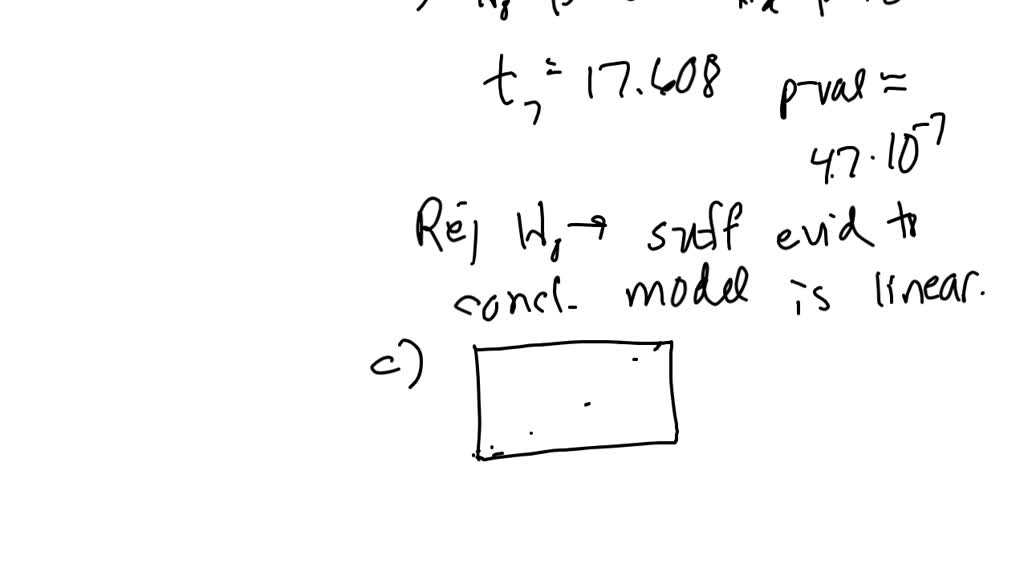 t₇ = 17.608 p-val =
4.7 · 10⁻⁷
Rej H₀ → suff evid to
concl. model is linear.
c)